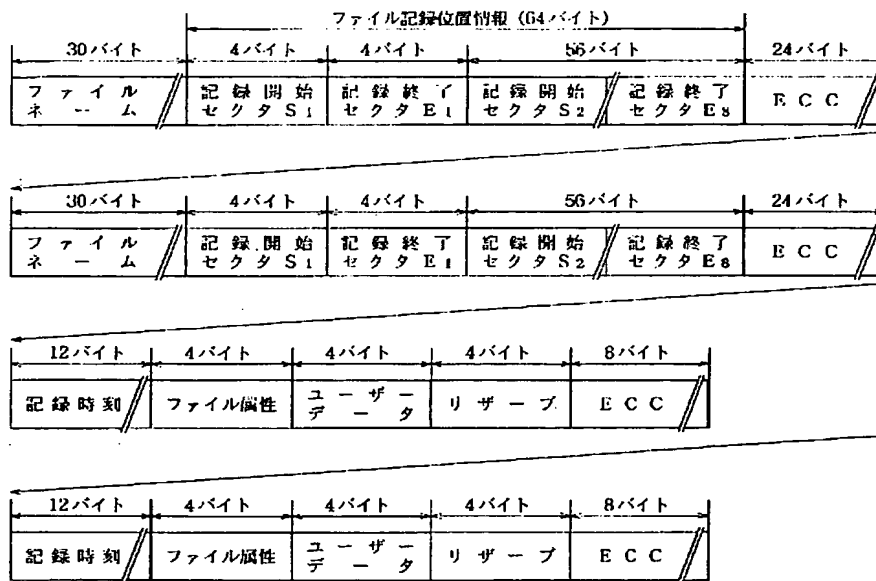 ファイル記録位置情報 (64バイト)
30バイト 4バイト 4バイト 56バイト 24バイト
ファイルネーム 記録開始セクタS1 記録終了セクタE1 記録開始セクタS2 記録終了セクタE8 ECC
30バイト 4バイト 4バイト 56バイト 24バイト
ファイルネーム 記録開始セクタS1 記録終了セクタE1 記録開始セクタS2 記録終了セクタE8 ECC
12バイト 4バイト 4バイト 4バイト 8バイト
記録時刻 ファイル属性 ユーザーデータ リザーブ ECC
12バイト 4バイト 4バイト 4バイト 8バイト
記録時刻 ファイル属性 ユーザーデータ リザーブ ECC